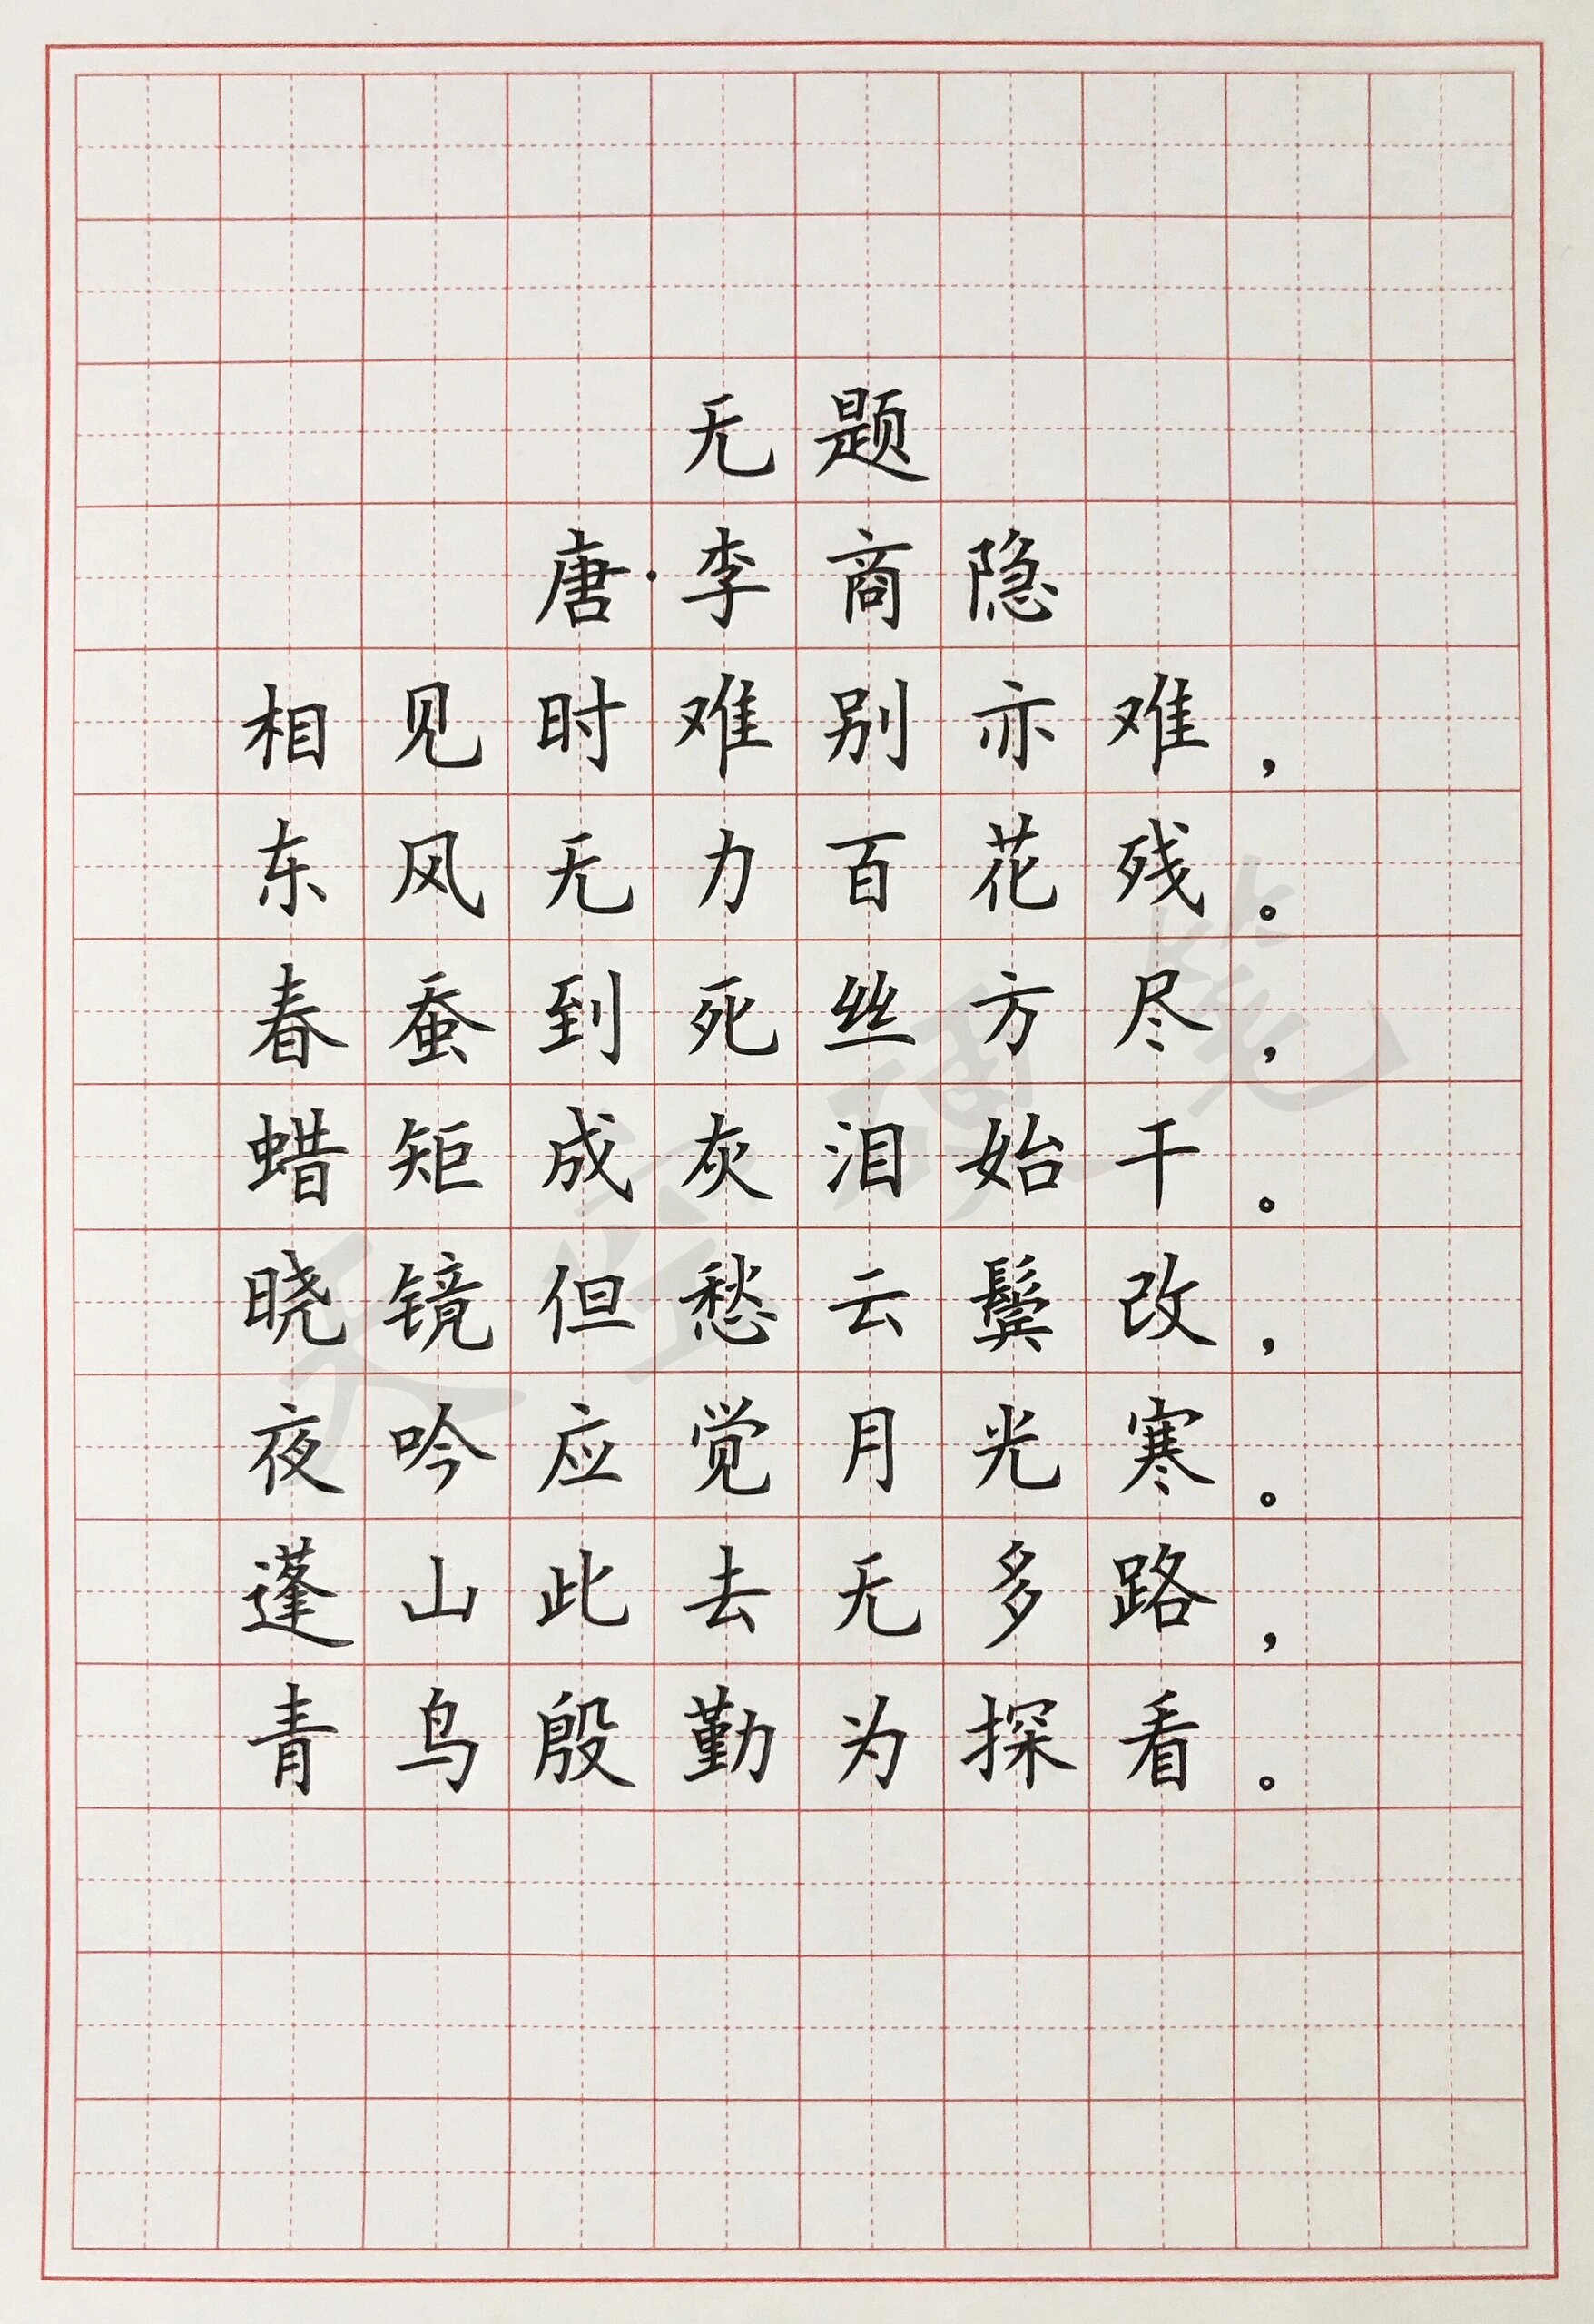 无题
唐·李商隐
相见时难别亦难，
东风无力百花残。
春蚕到死丝方尽，
蜡矩成灰泪始干。
晓镜但愁云鬓改，
夜吟应觉月光寒。
蓬山此去无多路，
青鸟殷勤为探看。
天空硬笔